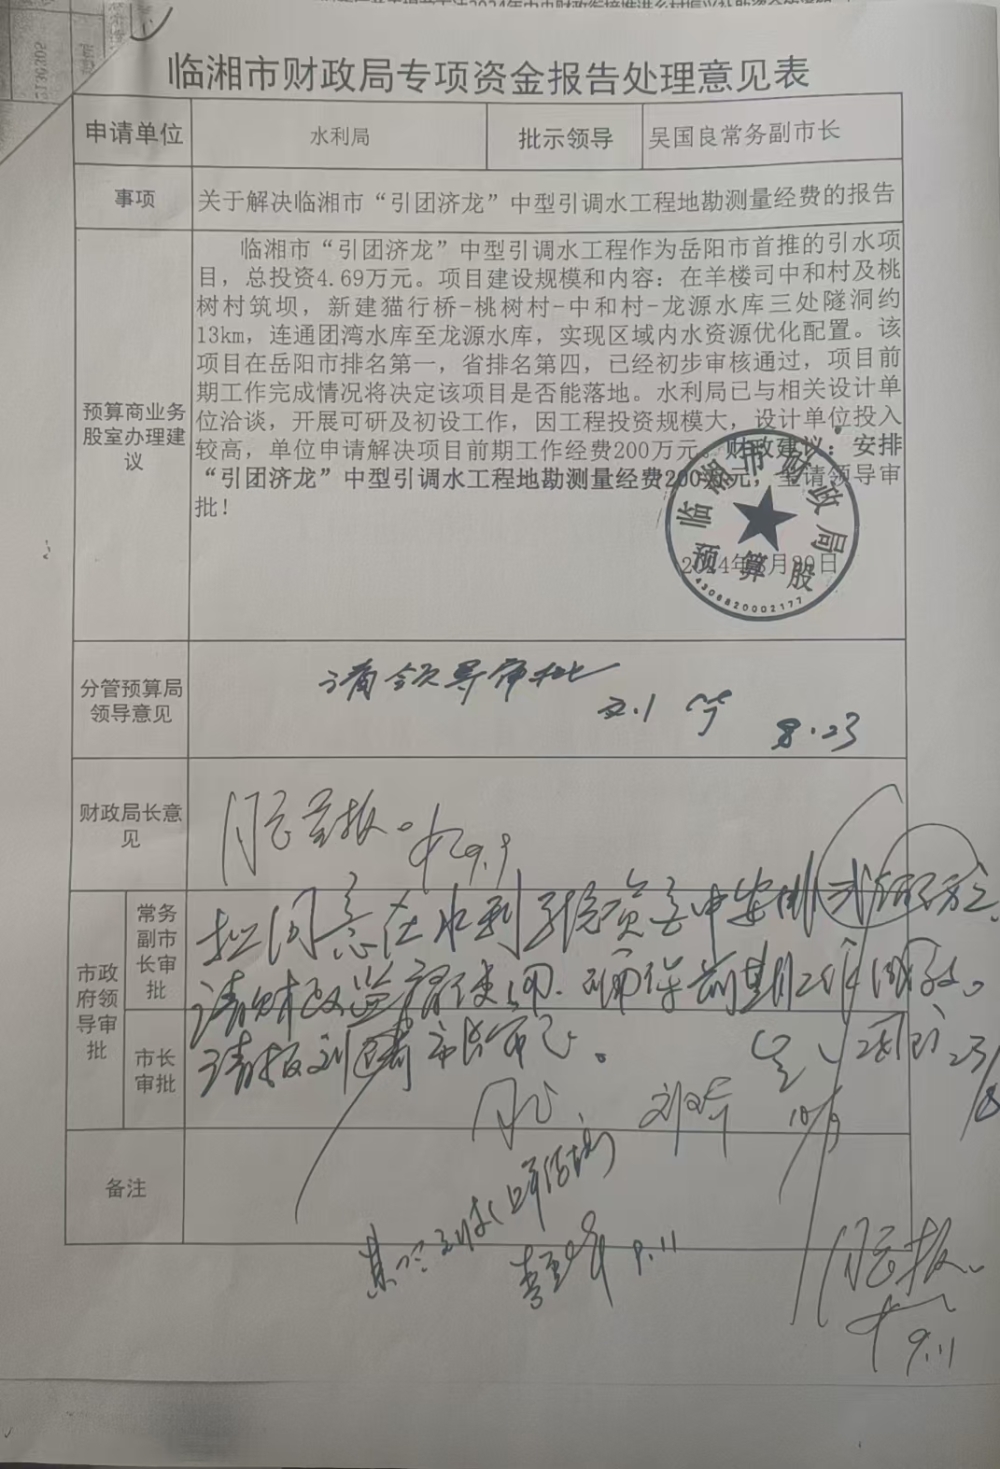 临湘市财政局专项资金报告处理意见表
申请单位 水利局 批示领导 吴国良常务副市长
事项 关于解决临湘市“引团济龙”中型引调水工程地勘测量经费的报告
预算商业务股室办理建议
临湘市“引团济龙”中型引调水工程作为岳阳市首推的引水项
目，总投资4.69万元。项目建设规模和内容：在羊楼司中和村及桃
树村筑坝，新建猫行桥-桃树村-中和村-龙源水库三处隧洞约
13km，连通团湾水库至龙源水库，实现区域内水资源优化配置。该
项目在岳阳市排名第一，省排名第四，已经初步审核通过，项目前
期工作完成情况将决定该项目是否能落地。水利局已与相关设计单
位洽谈，开展可研及初设工作，因工程投资规模大，设计单位投入
较高，单位申请解决项目前期工作经费200万元。财政建议：安排
“引团济龙”中型引调水工程地勘测量经费200万元，呈请领导审
批！
临湘市财政局
预算股
4306820002177
分管预算局领导意见
请领导审批
8.23
财政局长意见
同意呈报。
9.9
市政府领导审批
常务副市长审批
拟同意在水利系统资金中安排
请财政监督使用，确保前期工作
市长审批
请报刘琦市长审定。
吴国良 23/8
同意。 刘琦
备注
9.11
同意报。
9.11